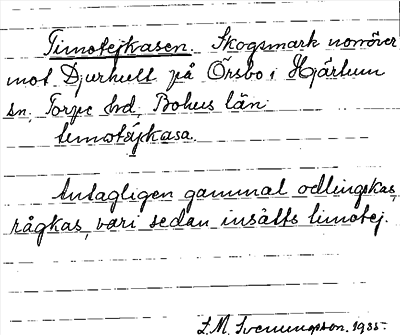 Timotejkasen. Skogsmark norröver
mot Djurhult på Örsbo i Hjärtum
sn, Torpe hd, Bohus län.
timotäjkasa.
Antagligen gammal odlingskas,
rågkas, vari sedan insatts timotej.
L. M. Svenungsson. 1935.